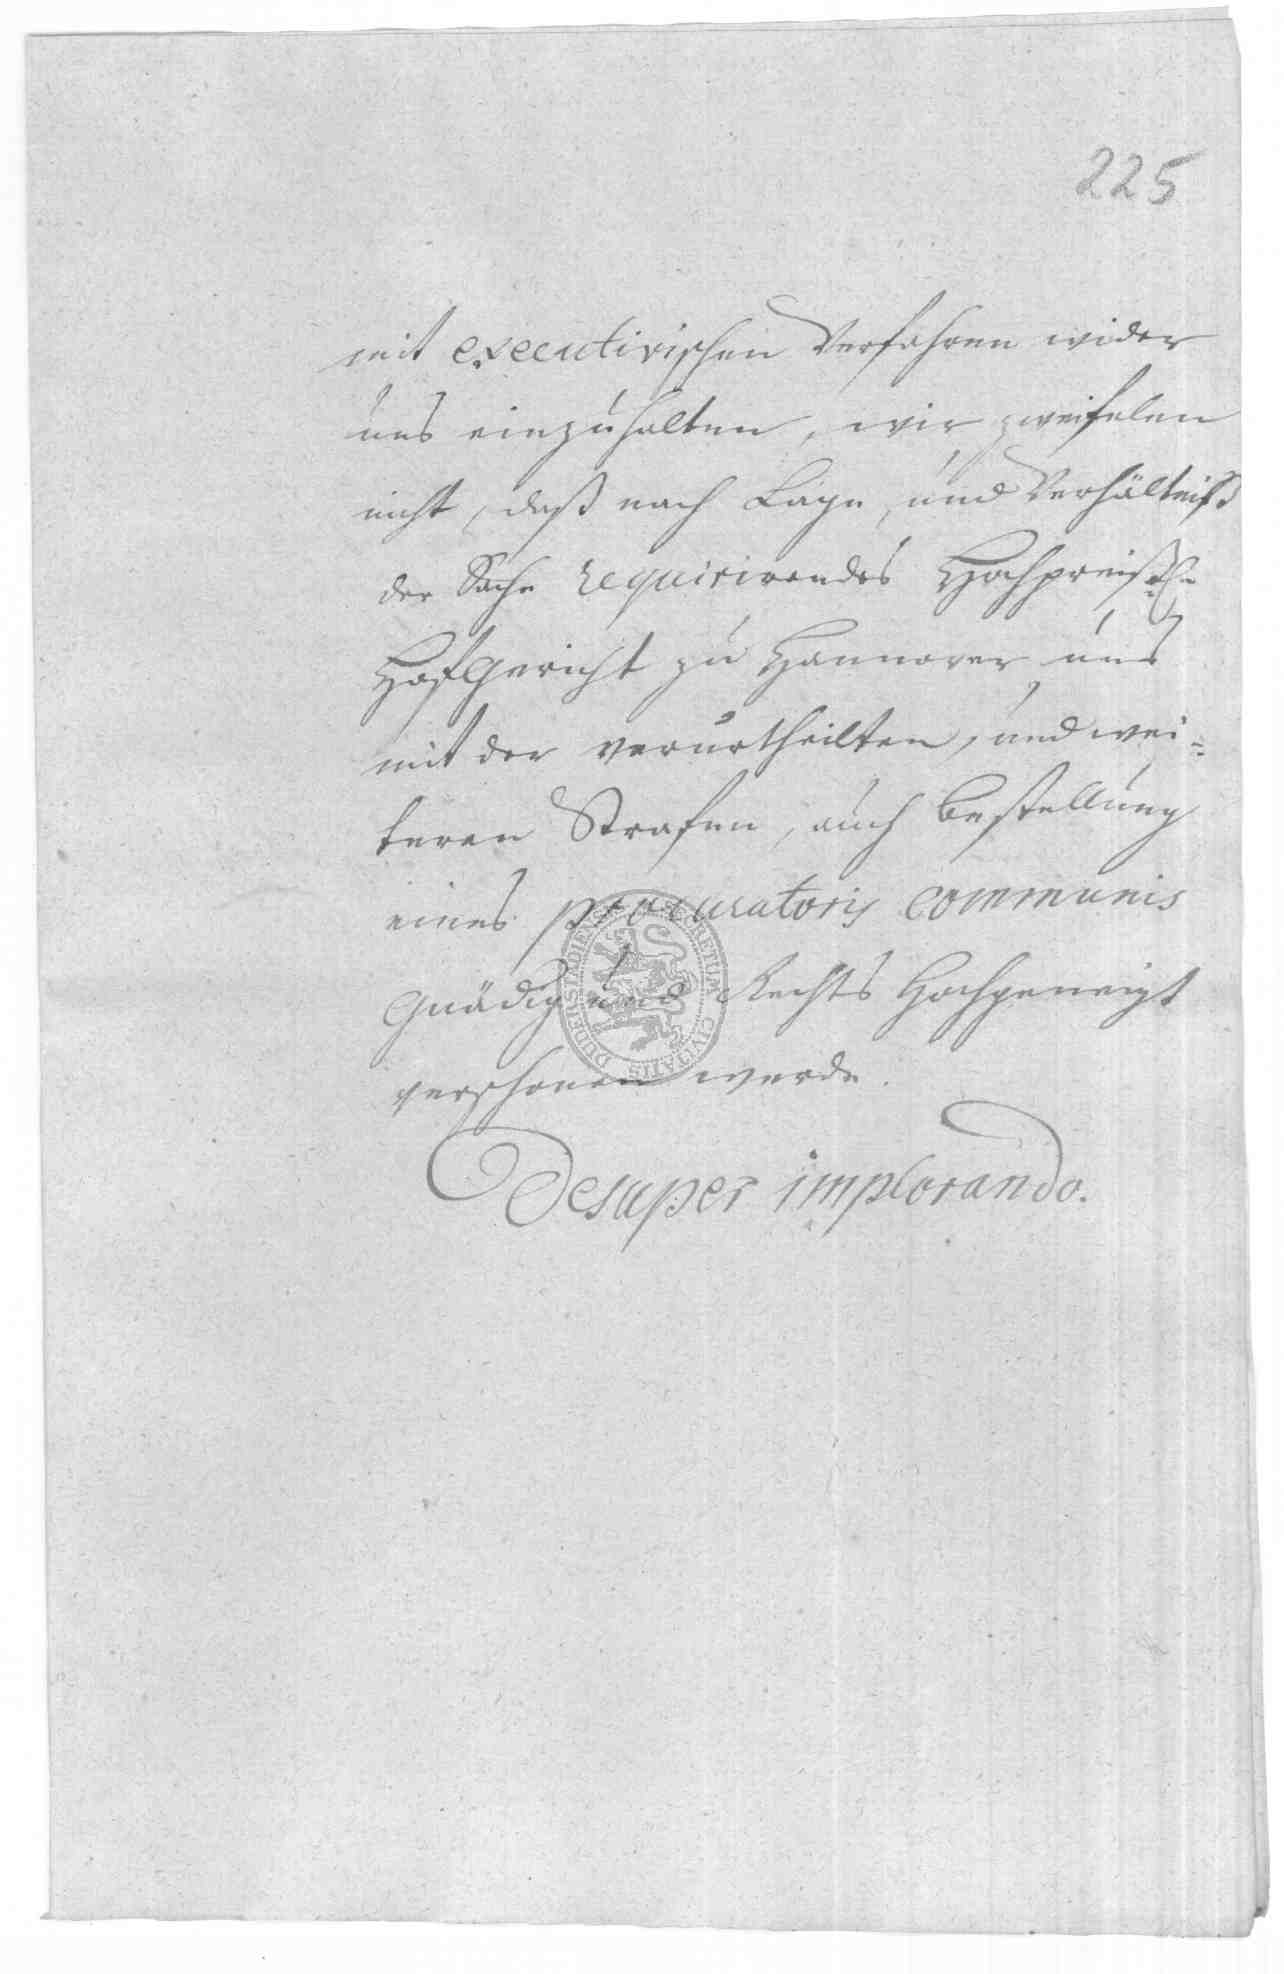 225
mit executivischen Verfahren wider
uns einzuhalten, wir zweifelen
nicht, daß nach Lage, und Verhältniß
der Sache requirirendes
Hofgericht zu Hannover uns
mit der verurtheilten, und wei=
teren Strafen, auch Bestellung
eines procuratoris communis
gnädig und Rechts Hochgeneigt
verschonen werde.
Desuper implorando.
SECRETUM CIVITATIS DUDERSTADIENSIS